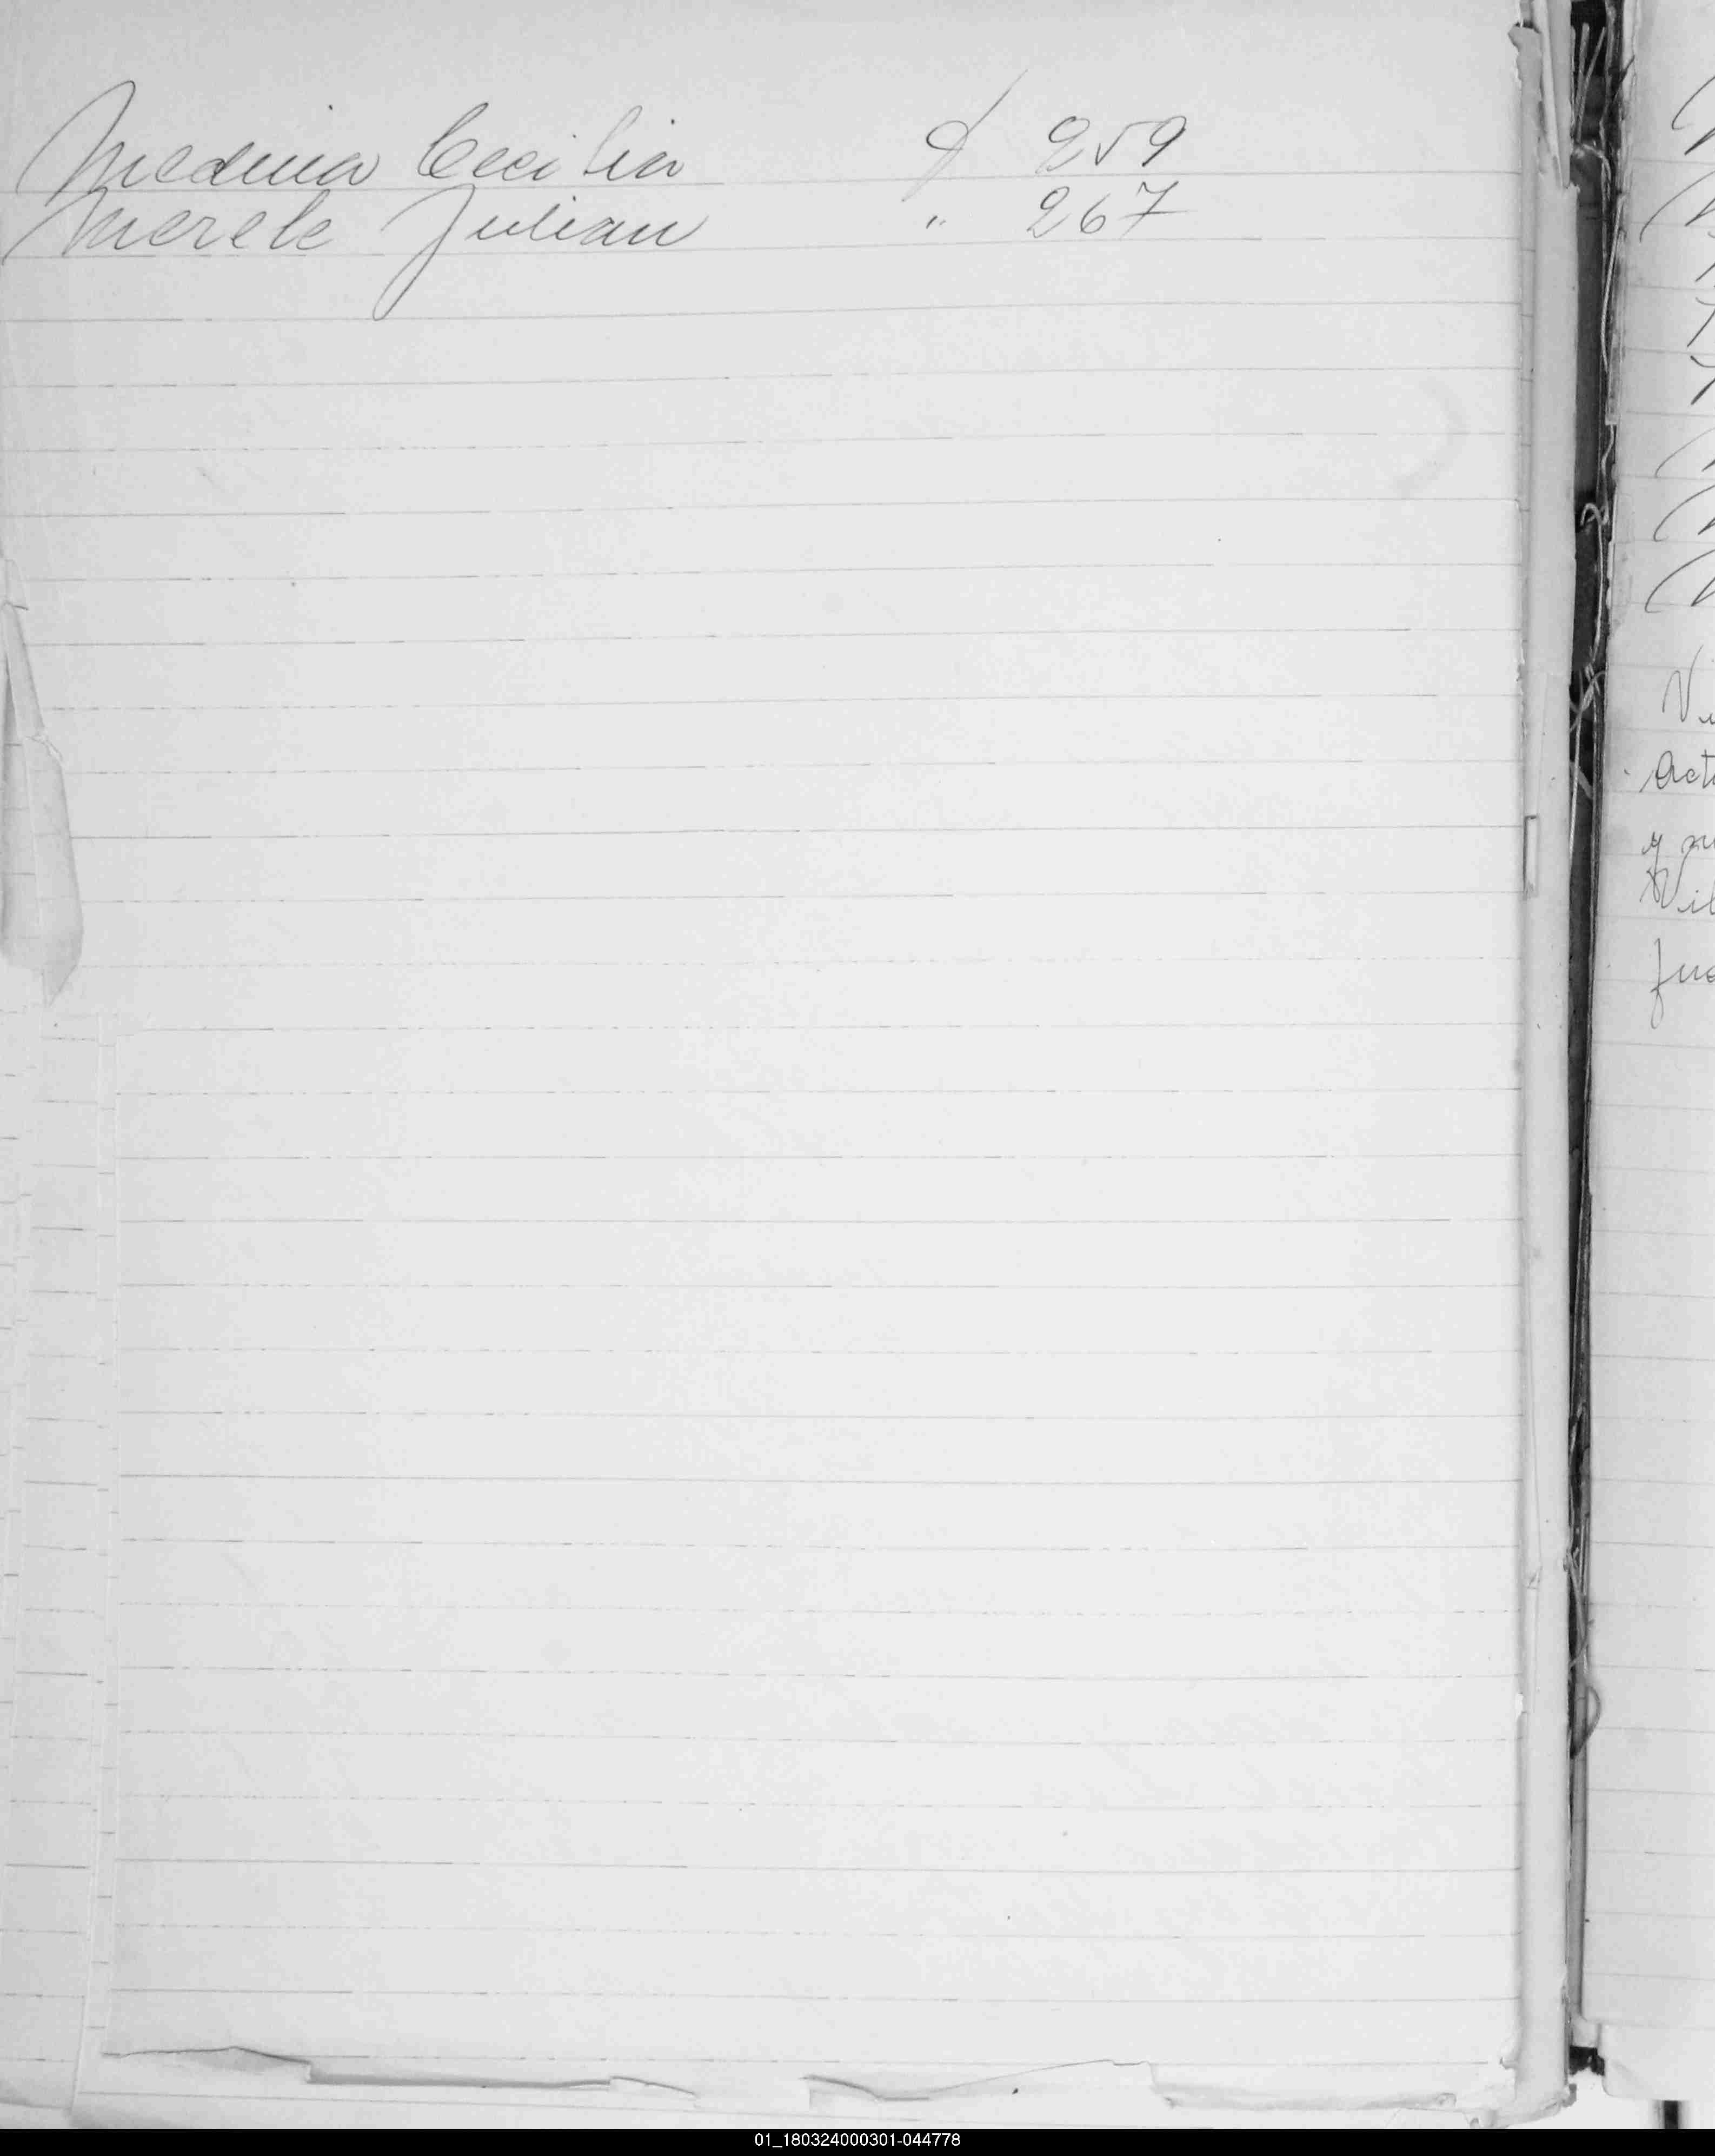 Medina Cecilia f 259
Merele Julian " 267
Vi
acta
y
fue
01_180324000301-044778